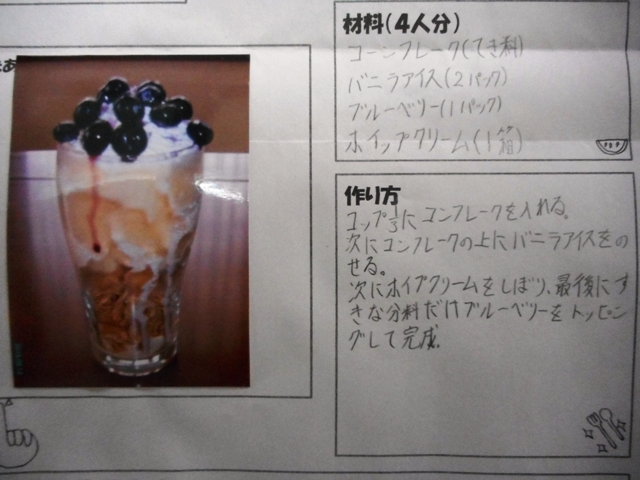 材料(4人分)
コーンフレーク(てき料)
バニラアイス(2パック)
ブルーベリー(1パック)
ホイップクリーム(1箱)
作り方
コップ1/3にコンフレークを入れる。
次にコンフレークの上にバニラアイスをの
せる。
次にホイプクリームをしぼり、最後にす
きな分料だけブルーベリーをトッピン
グして完成。